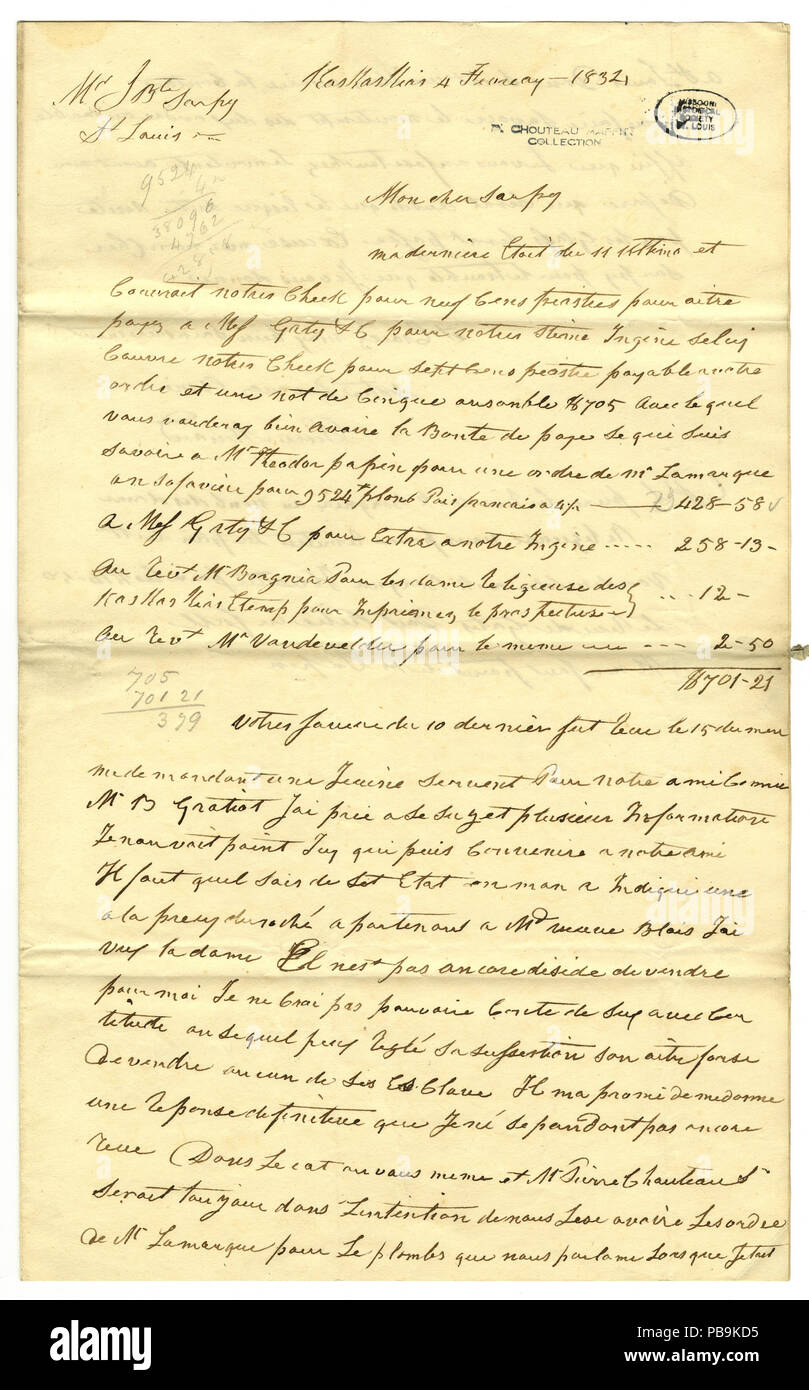 KasKasKias 4 Fevreay — 1832
Mr J Bte Sarpy
St Louis
MISSOURI HISTORICAL SOCIETY ST. LOUIS
P. CHOUTEAU MAFFITT
COLLECTION
9524
4
38096
4762
428
Mon cher Sarpy
ma derniere Etoit du 11 et
Couvroit notres Check pour neuf Cens piastres pour aitre
payez a Mes Gaty & C pour notres Stime Ingine seluy
Couvre notres Check pour sept Cens piastre payable a votre
ordre et une not de Cinque ansamble $705 avec le quel
vous vouderay bien avoire la Bonte de paye se qui suis
Savoire a Mr Theodor papin pour une ordre de Mr Lamarque
an sa faveur pour 9524 plomb Pois francais a 4½ — 428-58
a Mes Gaty & C pour Extra a notre Ingine ..... 258-13-
au Revt Mr Borgnia Pour les dame Religieuse des } ... 12-
KasKasKias Etemp pour Inprimez le prospectuse
au Revt Mr Vandevelder pour le meme --- 2-50
$701-21
705
701 21
3 79
votres favaire du 10 dernier fut Recu le 15 du meme
me demandant une Jeuine servent Pour notre ami Comin
Mr B Gratiot Jai prie a se sujet plusieur Information
Je nan vait point Juy qui puis Convenire a notre ami
Il faut quel sois de set Etat on man a Indiqui une
a la prery du roché apartenant a Md veuve Blais Jai
vuy la dame El nest pas ancore diside de vendre
pour moi Je ne Croi pas pouvoire Conte de suy avec Cer
titude an se quel puiy Reglé sa sussestion son aitre forse
De vendre aucun de ses Es Clave Il ma promi de me donne
une Reponse definitive que Jené sepandont pas ancore
reue Dans Le cat ou vous meme et Mr Pierre Chouteau Sr
Seroit toujour dans Lintention de nous Lese avoire Les ordre
de Mr Lamarque pour Le plombs que nous parlame Lorsque Jetoit
alamy
Image ID: PB9KD5
www.alamy.com